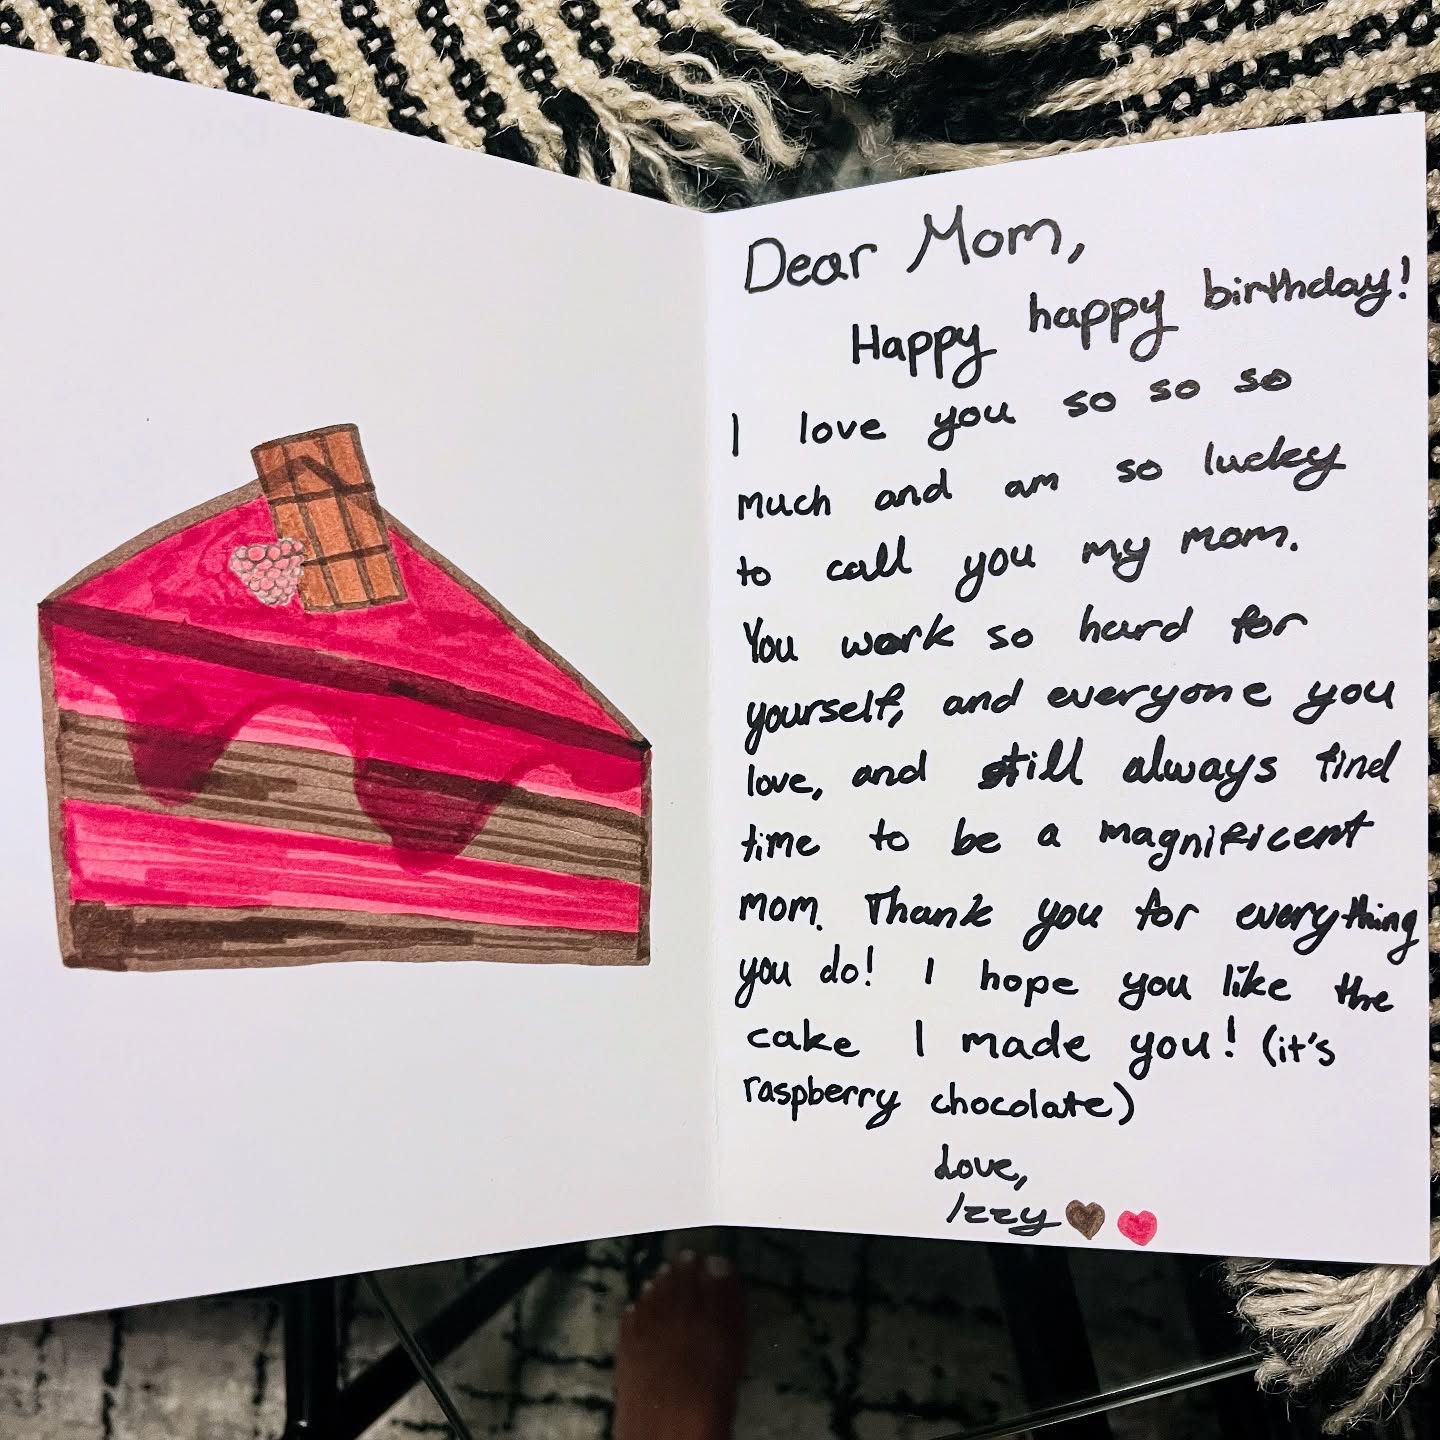 Dear Mom,
Happy happy birthday!
I love you so so so
much and am so lucky
to call you my mom.
You work so hard for
yourself, and everyone you
love, and still always find
time to be a magnificent
mom. Thank you for everything
you do! I hope you like the
cake I made you! (it's
raspberry chocolate)
Love,
Izzy